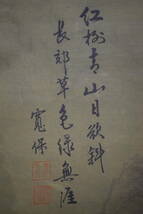 红树青山日欲斜
長郊草色绿無涯
寬保